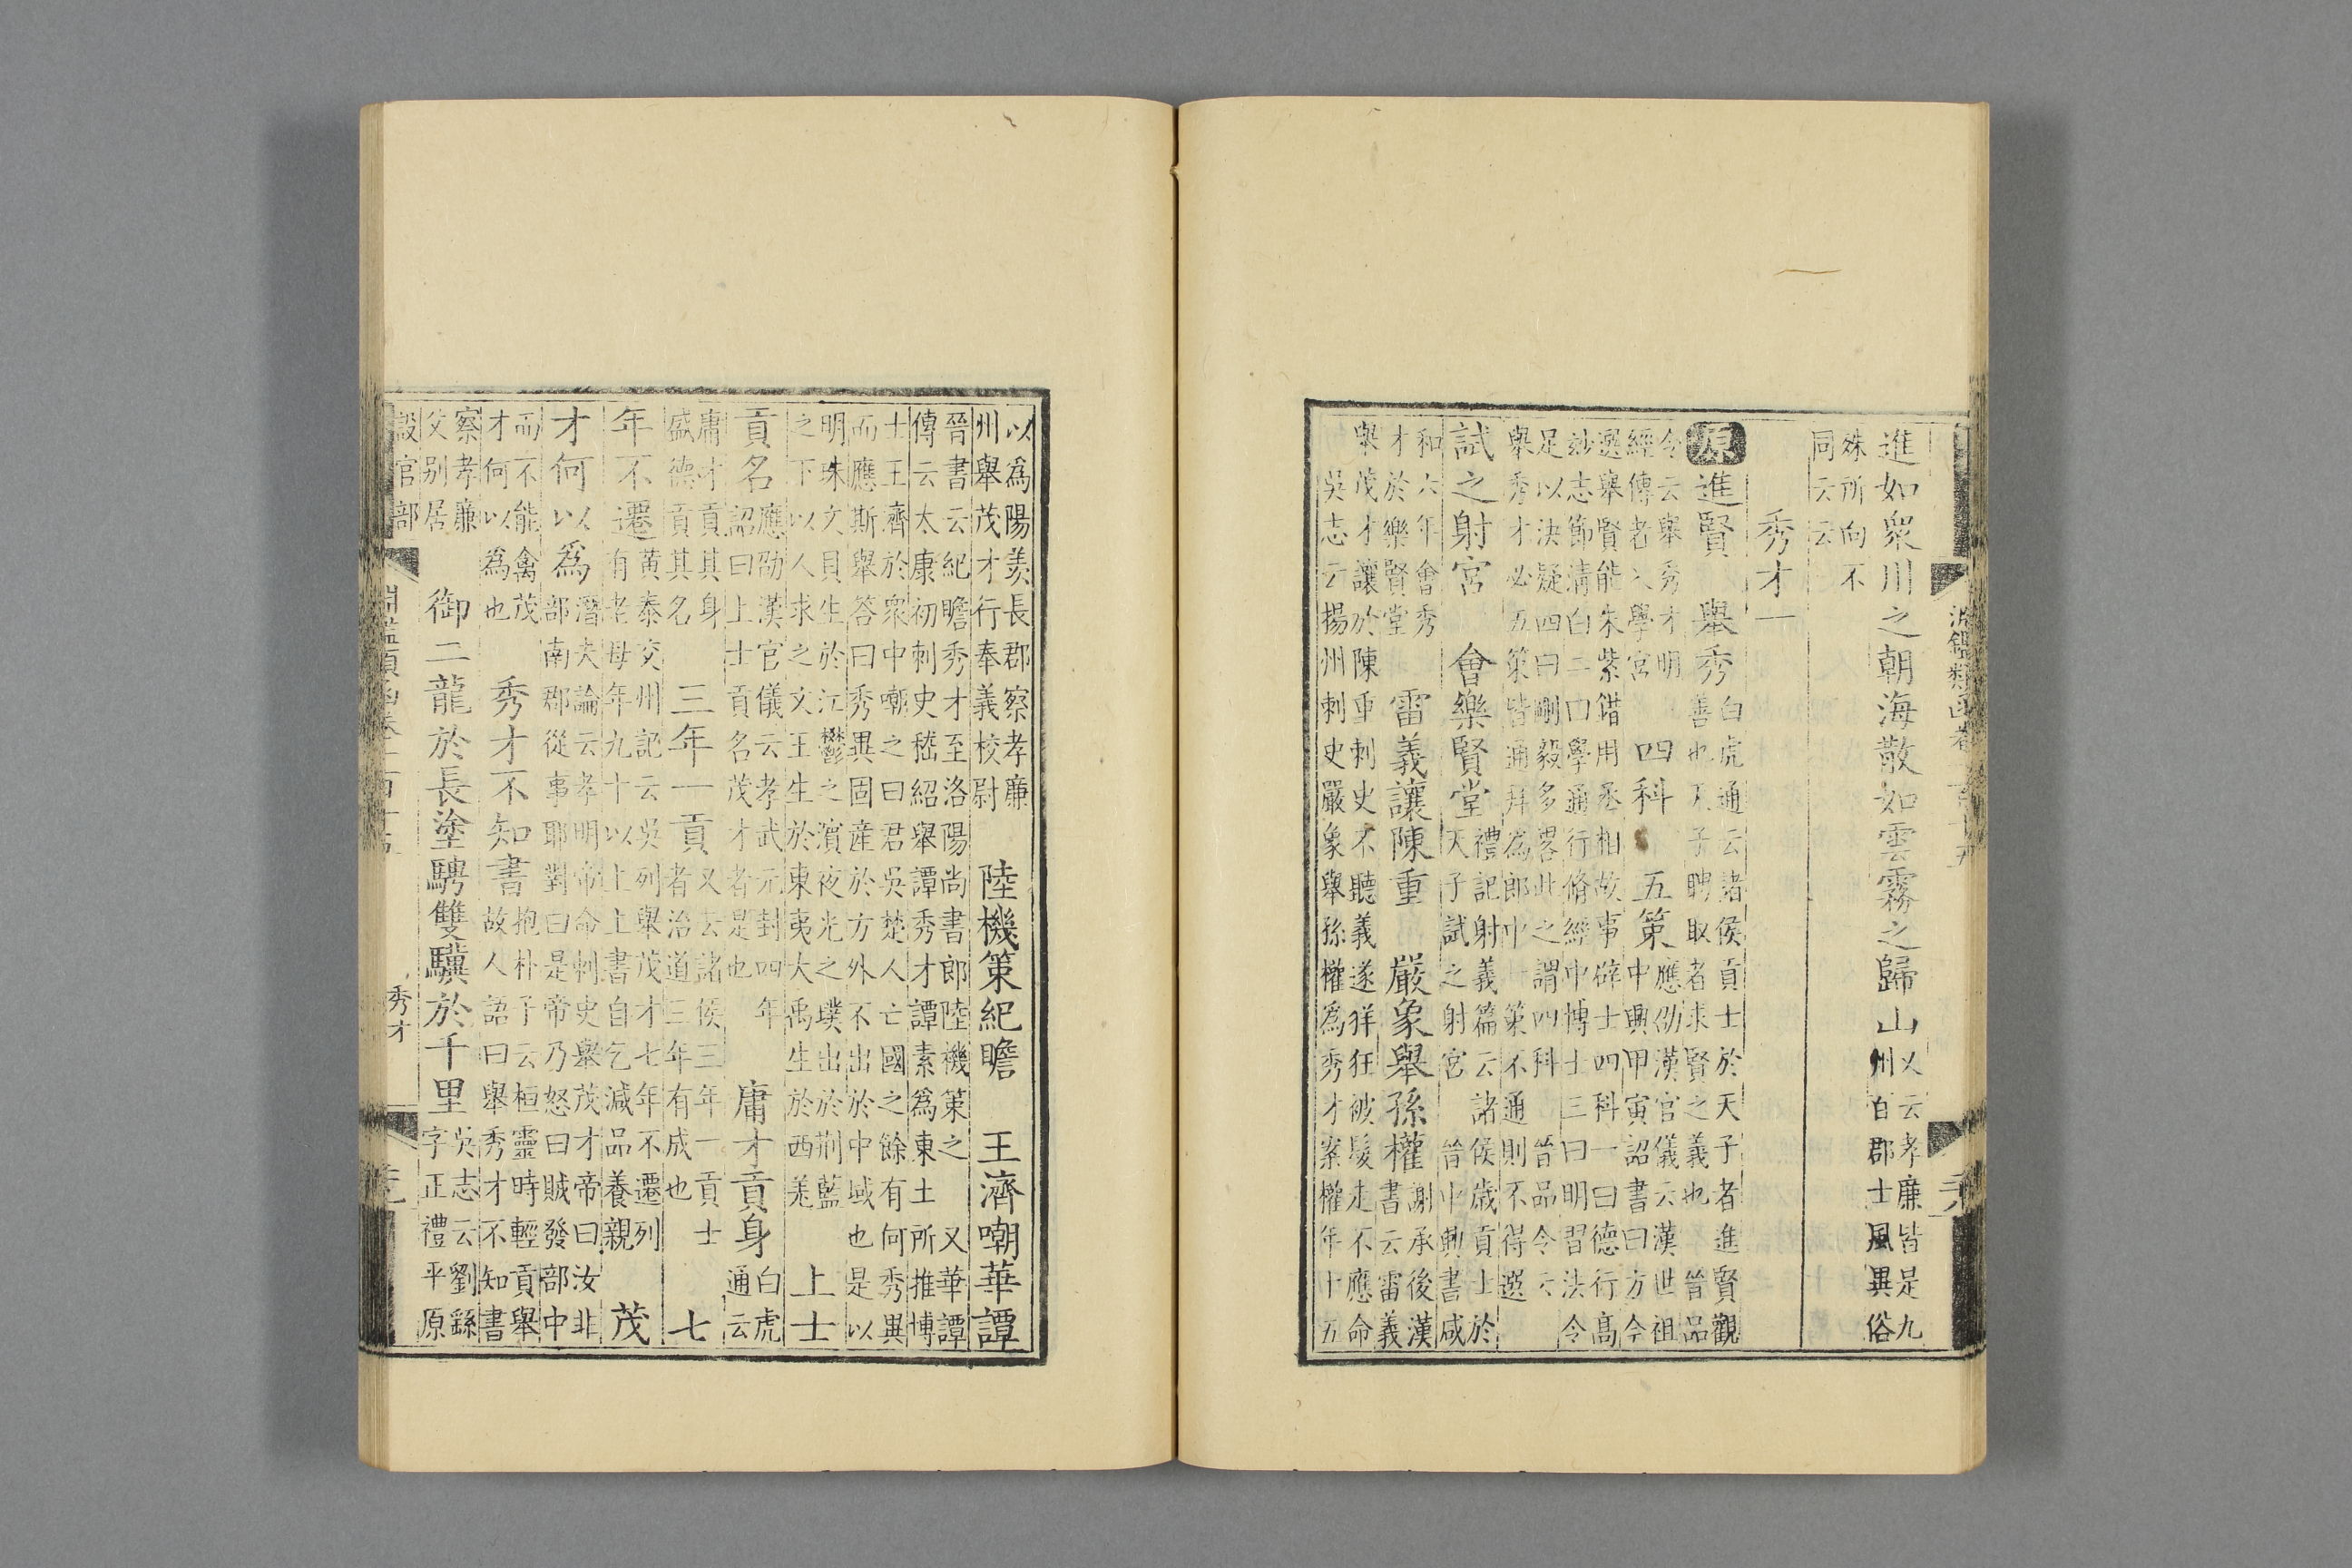 淵鑑類函卷一百十五
進如衆川之朝海散如雲霧之歸山
又云孝廉皆是九
州百郡士風異俗
殊所向不
同云云
秀才一
原進賢　舉秀
白虎通云諸侯貢士於天子者進賢觀
善也天子聘取者求賢之義也　晉品
令云舉秀才明
經傳者入學宮
四科　五策
應劭漢官儀云漢世祖
中興甲寅詔書曰方今
選舉賢能朱紫錯用丞相故事辟士四科一曰德行高
妙志節清白二曰學通行脩經中博士三曰明習法令
足以決疑四曰剛毅多畧此之謂四科　晉品令云
舉秀才必五策皆通拜爲郎中一策不通則不得選
試之射宮　會樂賢堂
禮記射義篇云諸侯歲貢士於
天子試之射宮　晉中興書咸
和六年會秀
才於樂賢堂
雷義讓陳重　嚴象舉孫權
謝承後漢
書云雷義
舉茂才讓於陳重刺史不聽義遂佯狂被髮走不應命
吳志云揚州刺史嚴象舉孫權爲秀才案權年十五
以爲陽羨長郡察孝廉
州舉茂才行奉義校尉
陸機策紀瞻　王濟嘲華譚
晉書云紀瞻秀才至洛陽尚書郎陸機策之　又華譚
傳云太康初刺史嵇紹舉譚秀才譚素爲東土所推博
士王濟於衆中嘲之曰君吳楚人亡國之餘有何秀異
而應斯舉答曰秀異固産於方外不出於中域也是以
明珠文貝生於江鬱之濱夜光之璞出於荆藍
之下以人求之文王生於東夷大禹生於西羌
上士
貢名
應劭漢官儀云孝武元封四年
詔曰上士貢名茂才者是也
庸才貢身
白虎
通云
庸才貢其身
盛德貢其名
三年一貢
又云諸侯三年一貢士
者治道三年有成也
七
年不遷
黃泰交州記云吳列舉茂才七年不遷列
有老母年九十以上上書自乞減品養親
茂
才何以爲
潛夫論云孝明帝命刺史舉茂才帝曰汝非
部南郡從事耶對曰是帝乃怒曰賊發部中
而不能禽茂
才何以爲也
秀才不知書
抱朴子云桓靈時輕貢舉
故人語曰舉秀才不知書
察孝廉
父别居
御二龍於長塗騁雙驥於千里
吳志云劉繇
字正禮平原
設官部
淵鑑類函卷一百十五
秀才